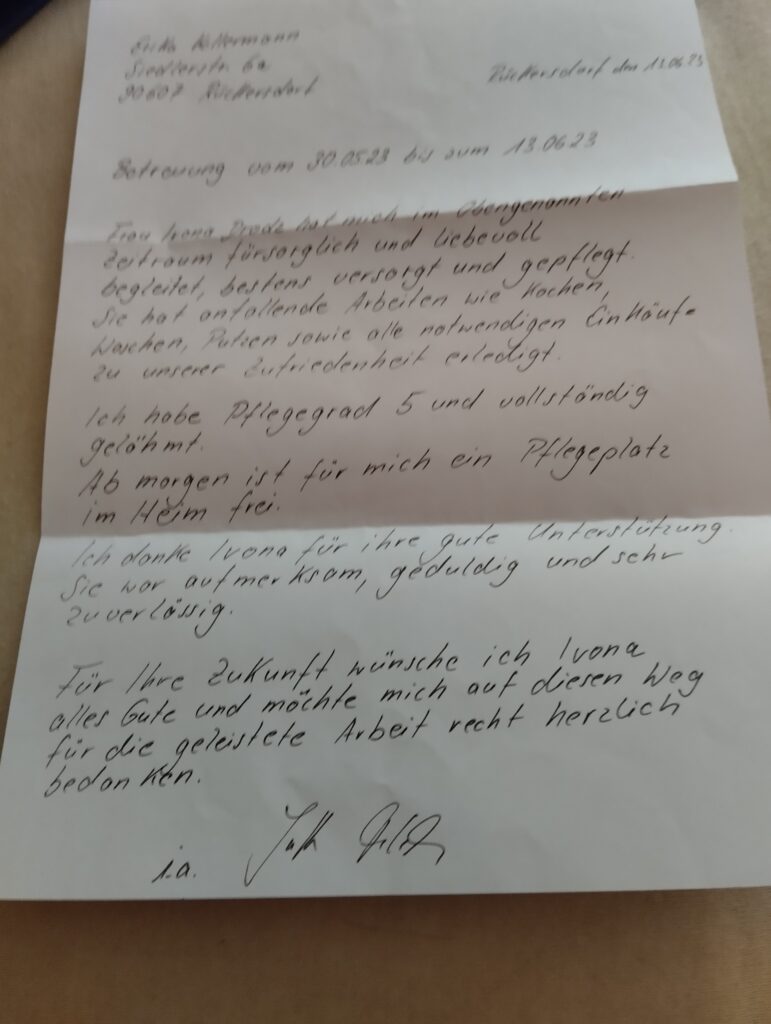 Erika Kellermann
Siedlerstr. 6a
90607 Rückersdorf
Rückersdorf den 13.06.23
Betreuung vom 30.05.23 bis zum 13.06.23
Frau Ivona Drodz hat mich im Obengenannten
Zeitraum fürsorglich und liebevoll
begleitet, bestens versorgt und gepflegt.
Sie hat anfallende Arbeiten wie Kochen,
Waschen, Putzen sowie alle notwendigen Einkäufe
zu unserer Zufriedenheit erledigt.
Ich habe Pflegegrad 5 und vollständig
gelähmt.
Ab morgen ist für mich ein Pflegeplatz
im Heim frei.
Ich danke Ivona für ihre gute Unterstützung.
Sie war aufmerksam, geduldig und sehr
zuverlässig.
Für Ihre Zukunft wünsche ich Ivona
alles Gute und möchte mich auf diesen Weg
für die geleistete Arbeit recht herzlich
bedanken.
i.a.